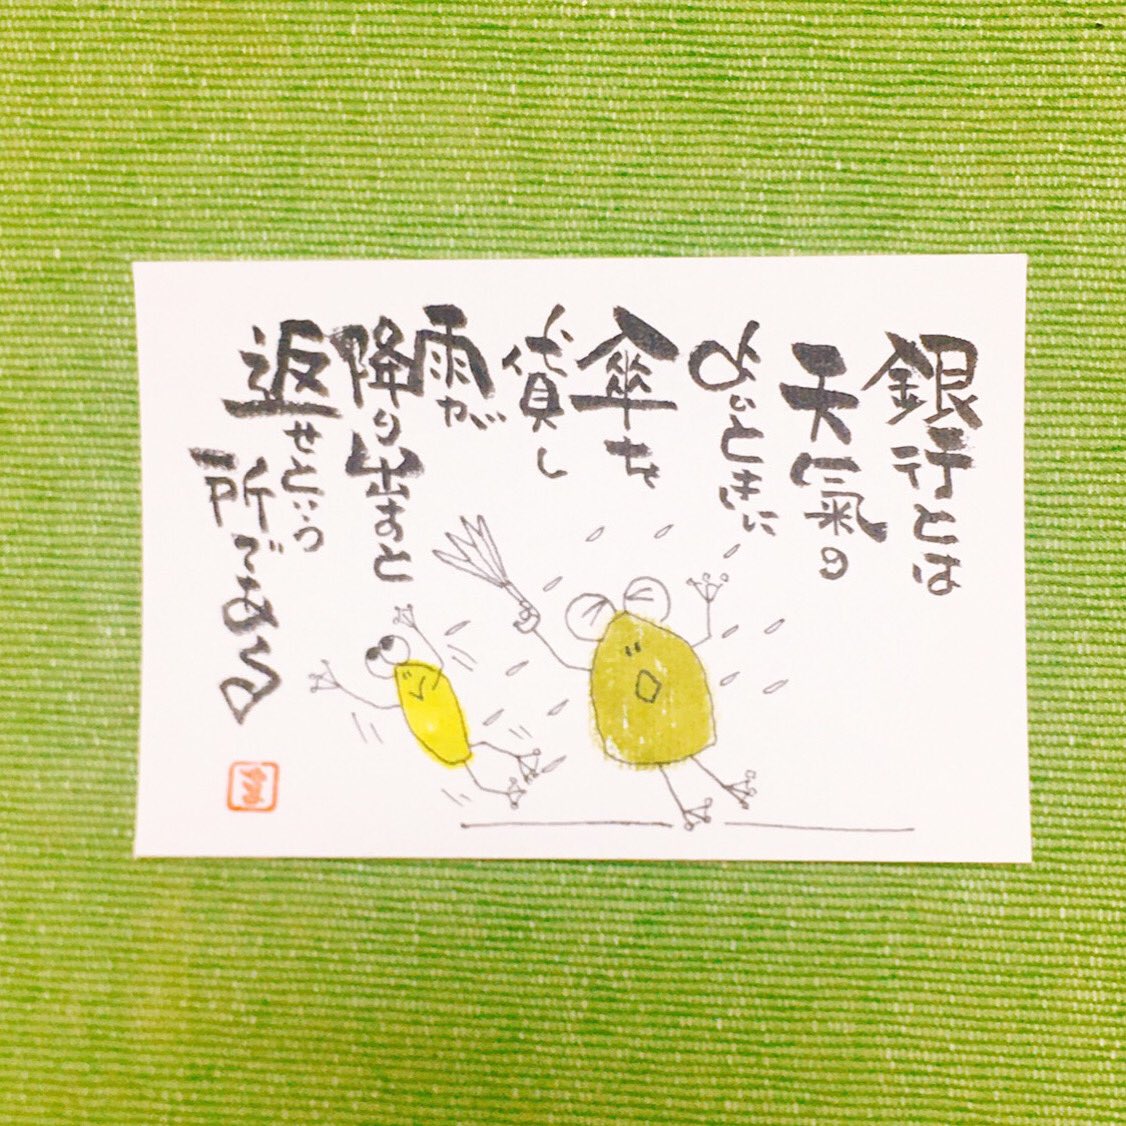 銀行とは
天氣の
よいときに
傘を
貸し
雨が
降り出すと
返せという
所である